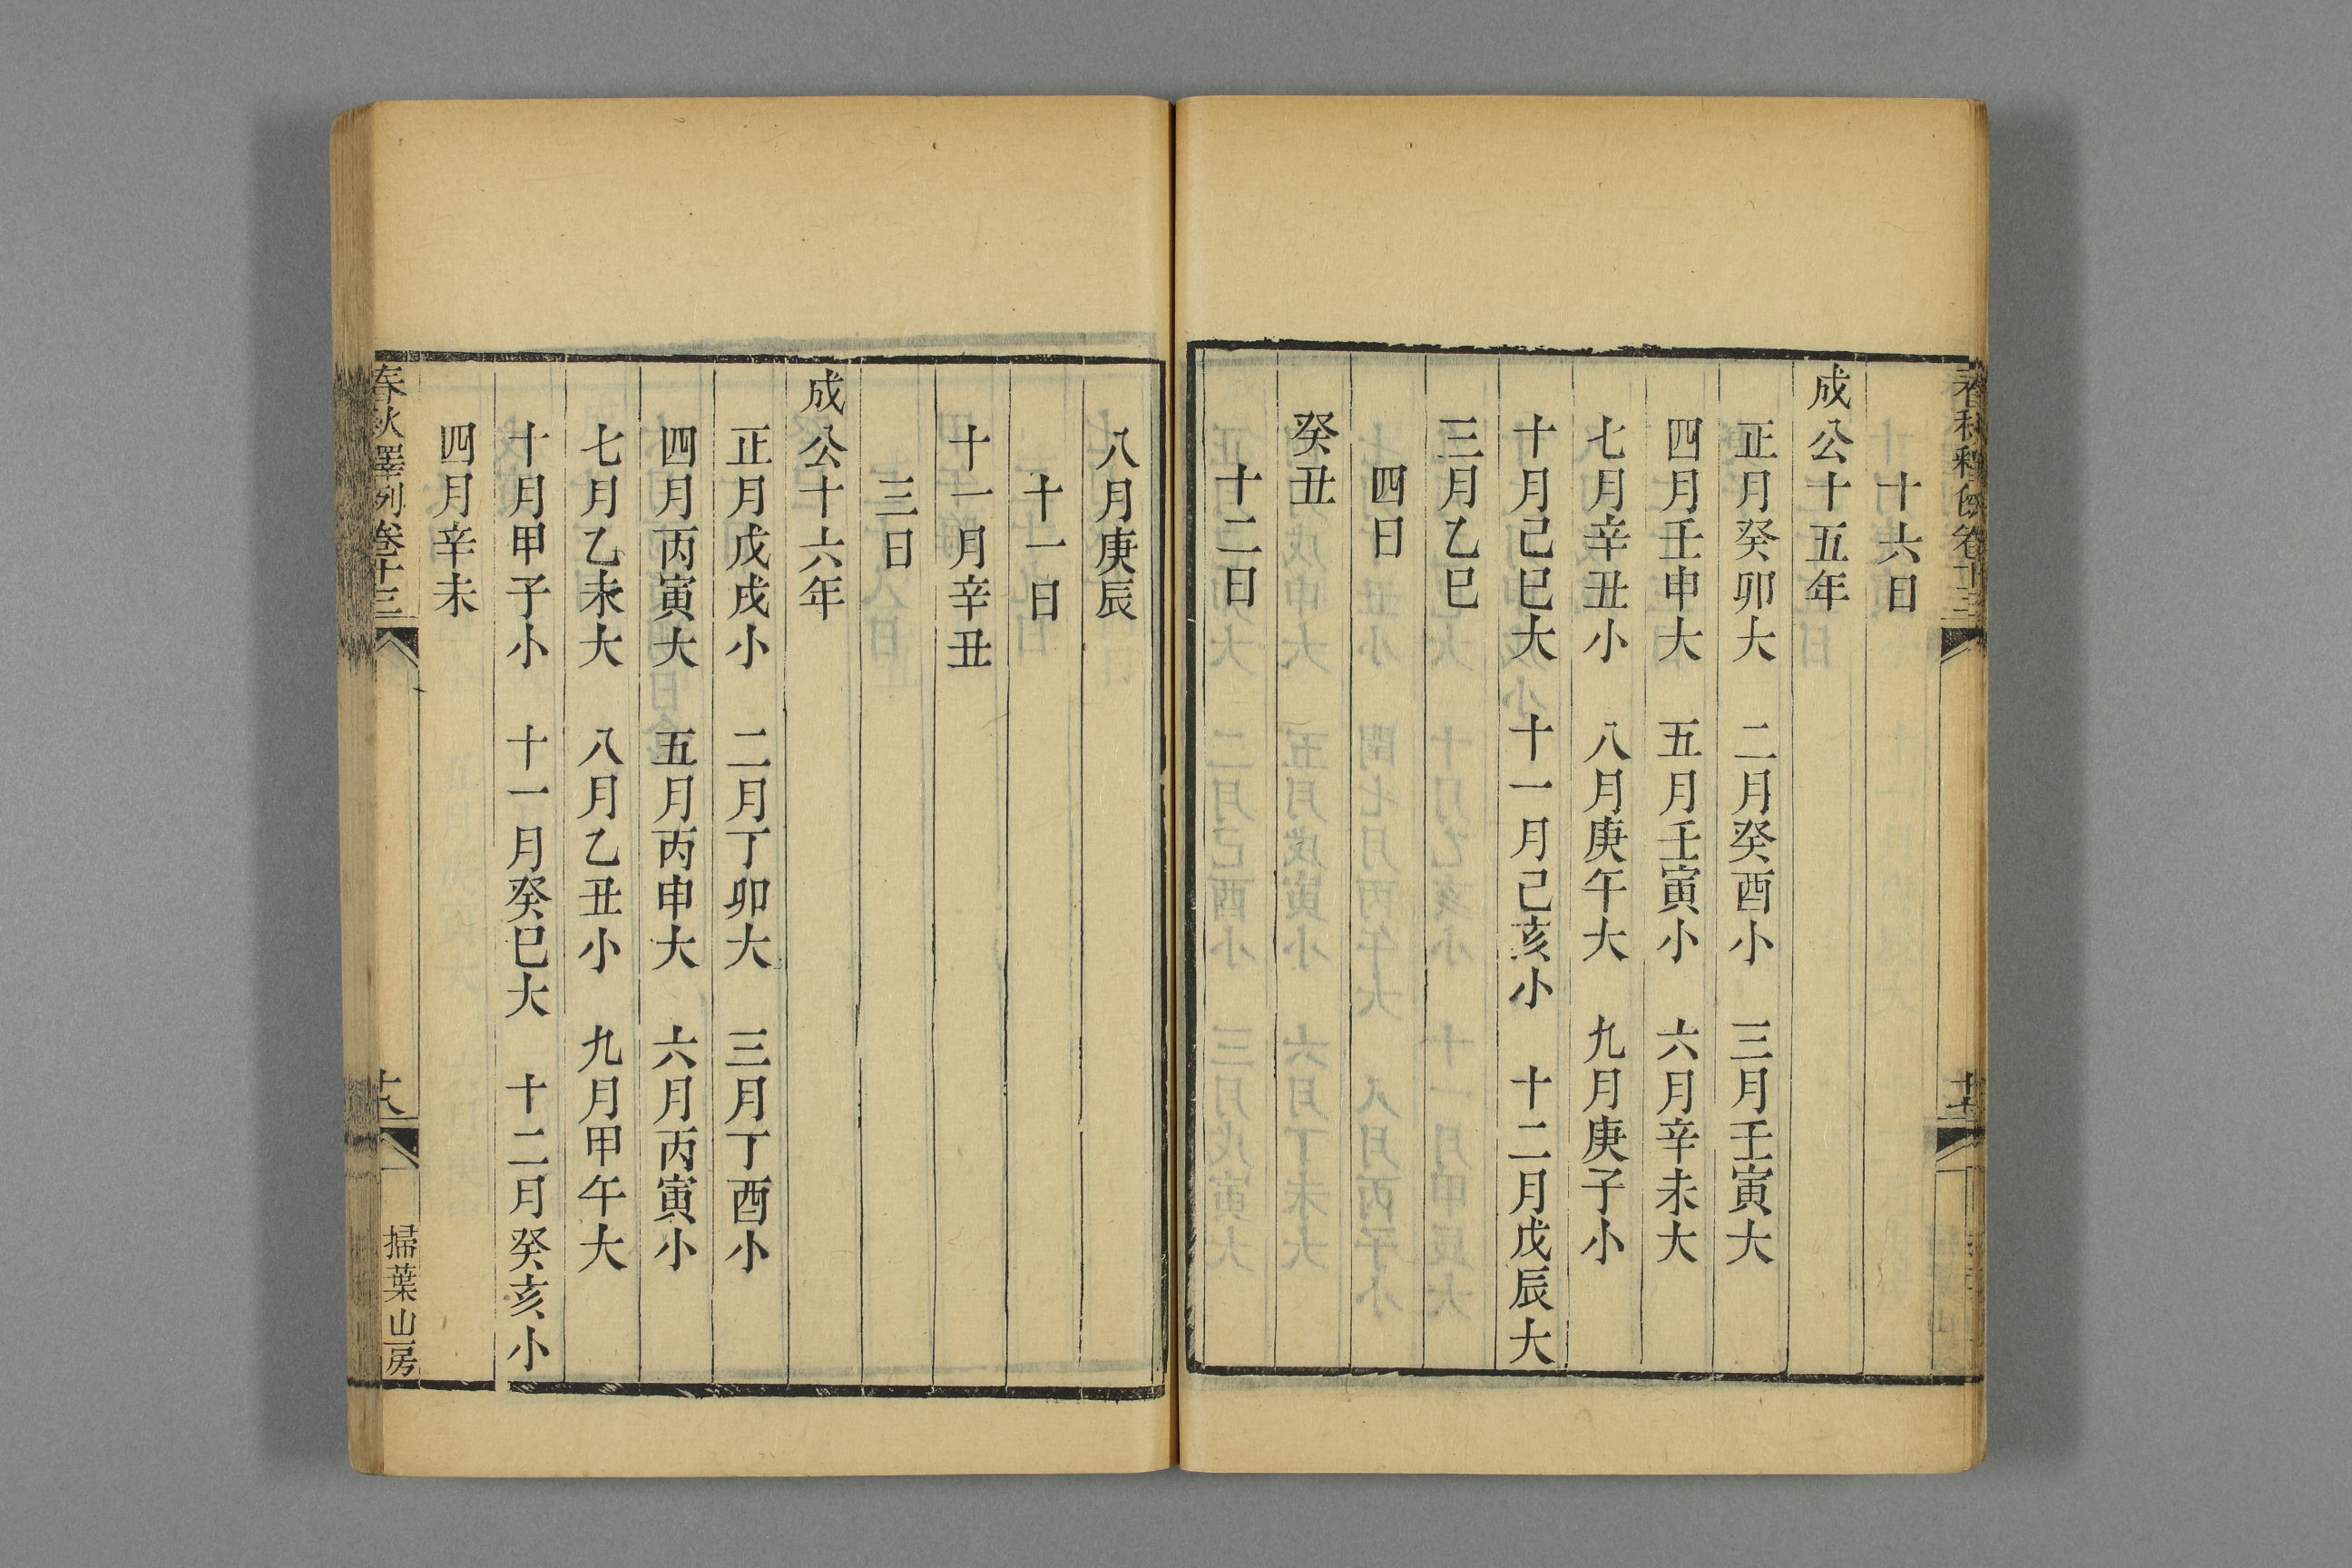 十六日
成公十五年
正月癸卯大 二月癸酉小 三月壬寅大
四月壬申大 五月壬寅小 六月辛未大
七月辛丑小 八月庚午大 九月庚子小
十月己巳大 十一月己亥小 十二月戊辰大
三月乙巳
四日
癸丑
十二日
八月庚辰
十一日
十一月辛丑
三日
成公十六年
正月戊戌小 二月丁卯大 三月丁酉小
四月丙寅大 五月丙申大 六月丙寅小
七月乙未大 八月乙丑小 九月甲午大
十月甲子小 十一月癸巳大 十二月癸亥小
四月辛未
春秋釋例卷十三
十八
掃葉山房